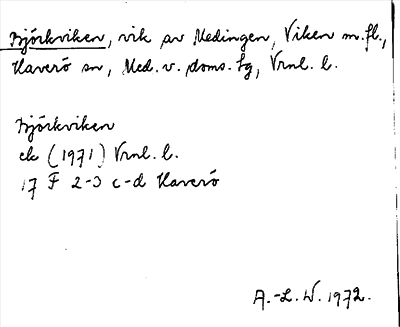 Björkviken, vik av Medingen, Viken m.fl.,
Haverö sn, Med. v. doms. tg, Vrnl. l.
Björkviken
ek (1971) Vrnl. l.
17 F 2-3 c-d Haverö
A.-L. W. 1972.